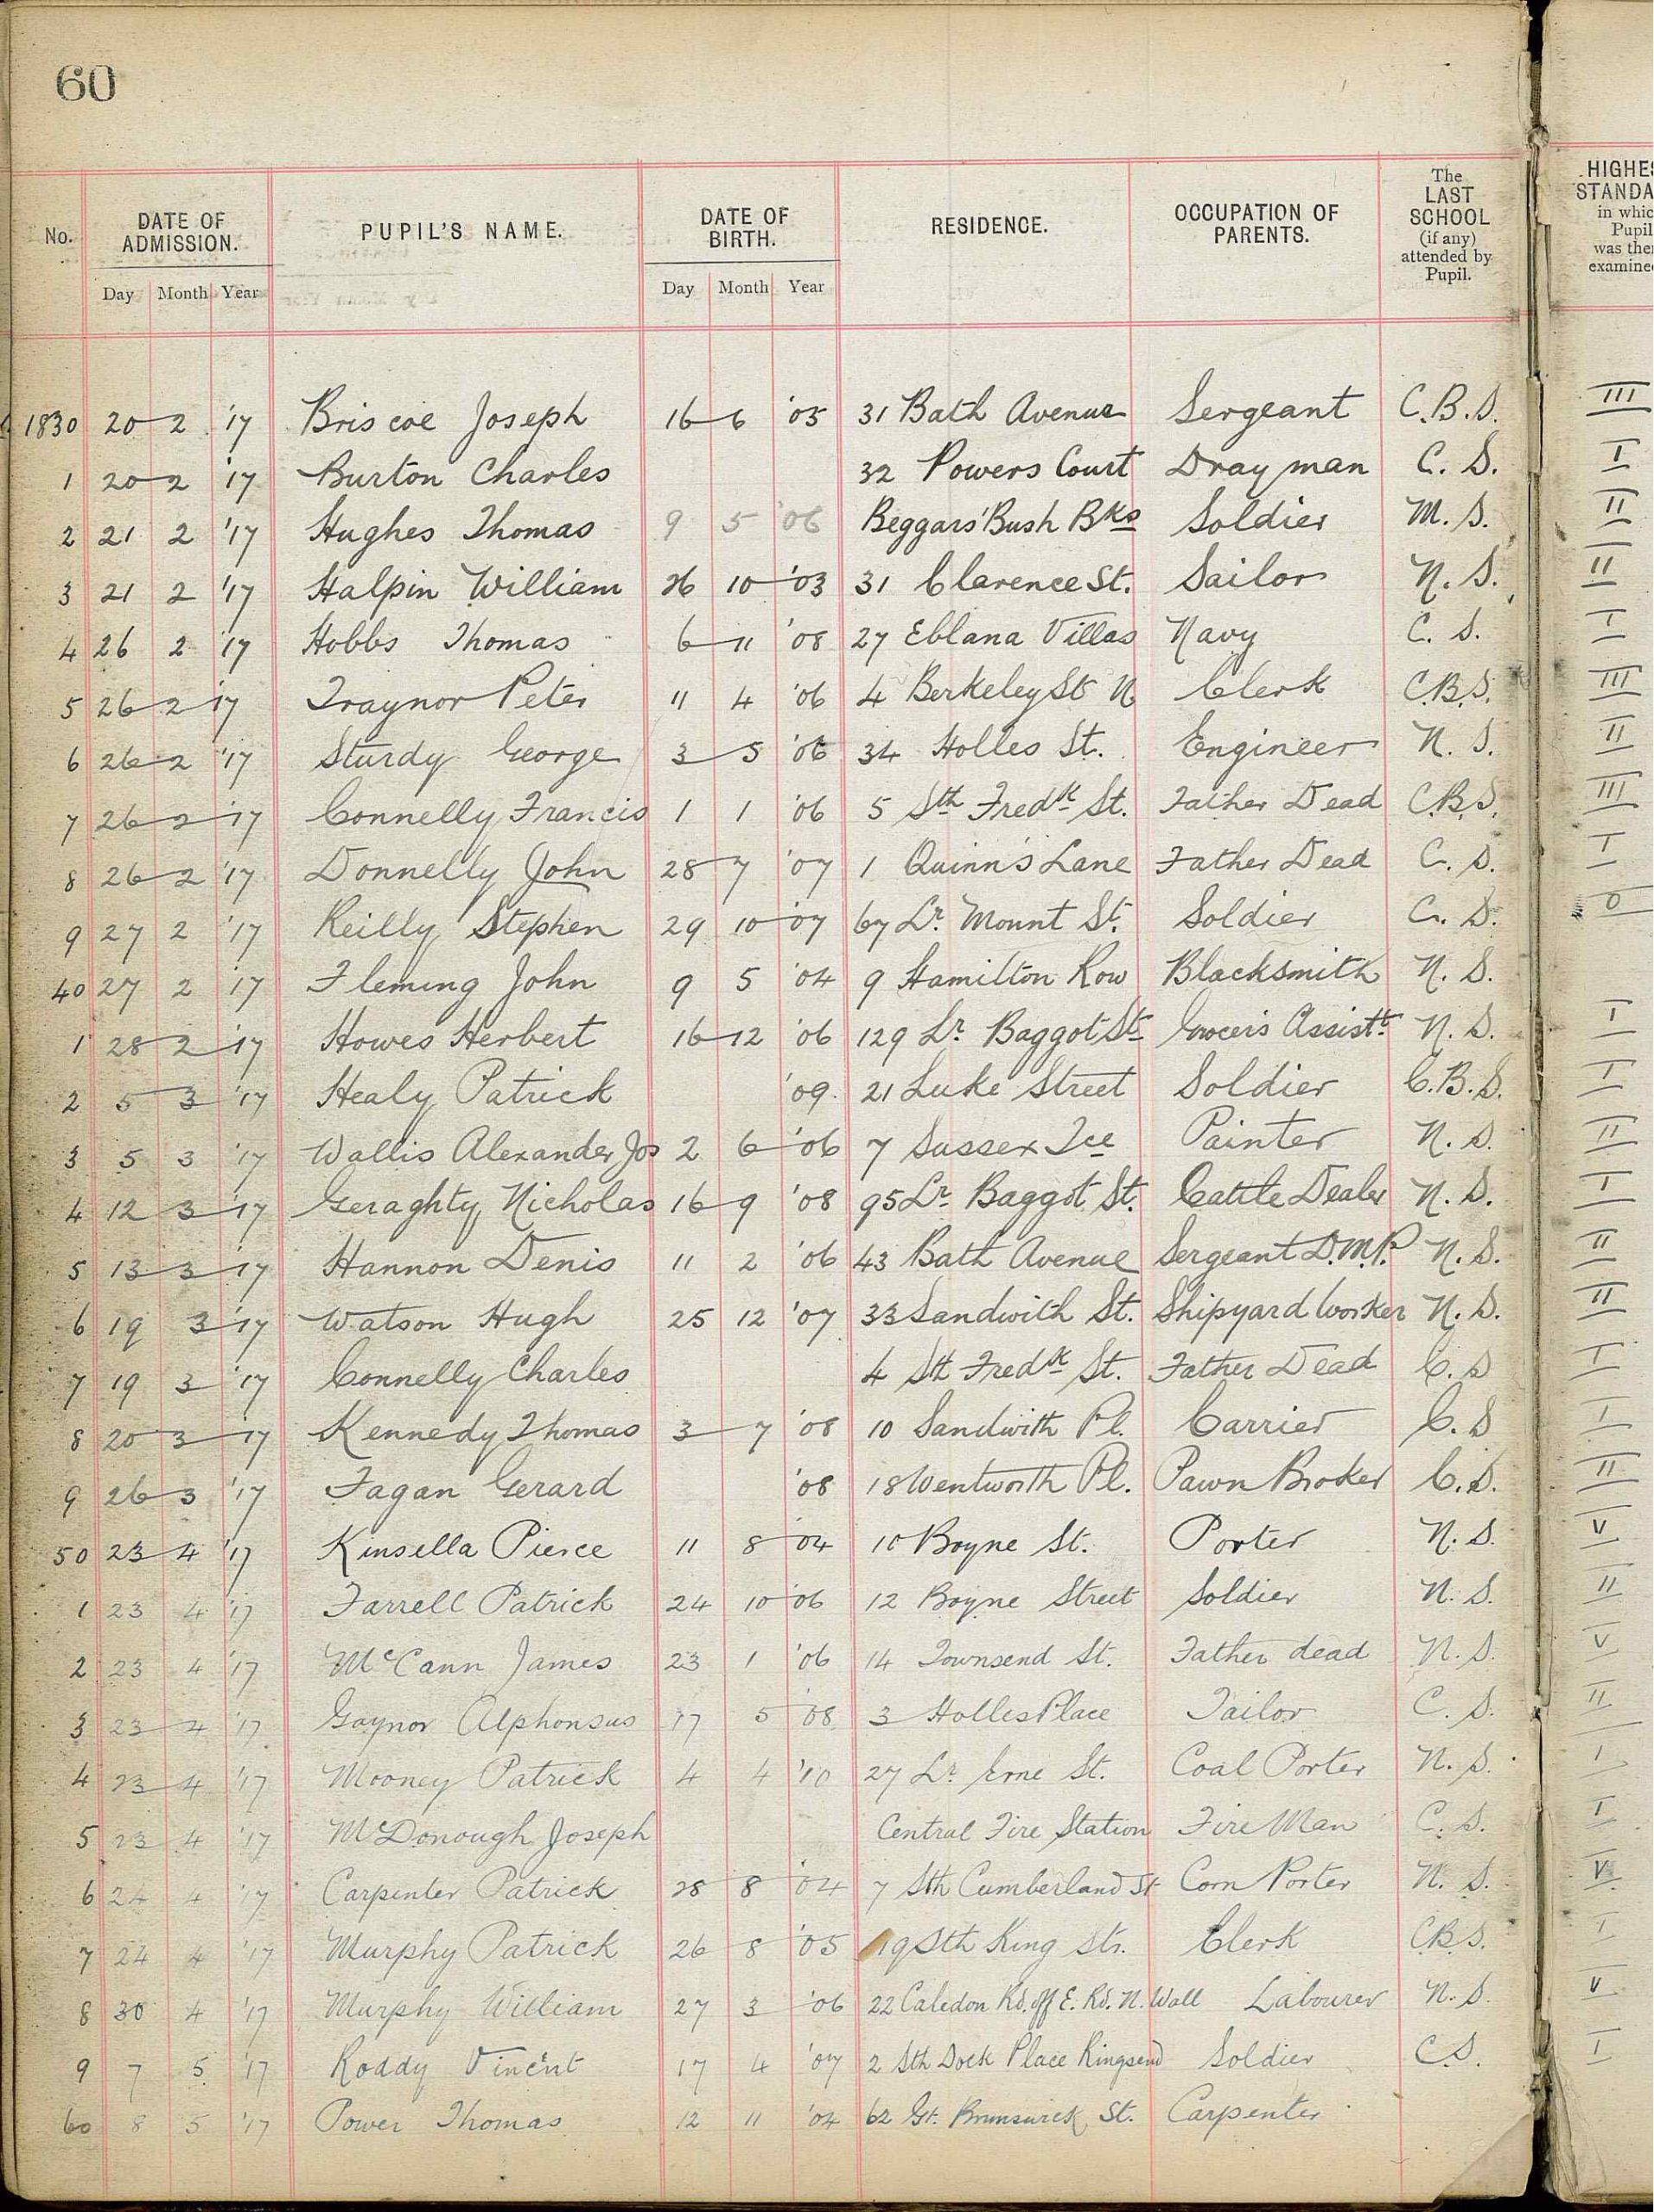 60
No. DATE OF ADMISSION. PUPIL'S NAME. DATE OF BIRTH. RESIDENCE. OCCUPATION OF PARENTS. The LAST SCHOOL (if any) attended by Pupil. HIGHES STANDA in whic Pupil was the examine
Day Month Year Day Month Year
1830 20 2 '17 Briscoe Joseph 16 6 '05 31 Bath Avenue Sergeant C.B.S. III
1 20 2 '17 Burton Charles 32 Powers Court Drayman C. S. I
2 21 2 '17 Hughes Thomas 9 5 '06 Beggars' Bush Bks Soldier M. S. II
3 21 2 '17 Halpin William 26 10 '03 31 Clarence St. Sailor N. S. II
4 26 2 '17 Hobbs Thomas 6 11 '08 27 Eblana Villas Navy C. S. I
5 26 2 '17 Traynor Peter 11 4 '06 4 Berkeley St N Clerk C.B.S. III
6 26 2 '17 Sturdy George 3 5 '06 34 Holles St. Engineer N. S. II
7 26 2 '17 Connelly Francis 1 1 '06 5 Sth Fredk St. Father Dead C.B.S. III
8 26 2 '17 Donnelly John 28 7 '07 1 Quinn's Lane Father Dead C. S. I
9 27 2 '17 Reilly Stephen 29 10 '07 67 Lr. Mount St. Soldier C. S. 0
40 27 2 '17 Fleming John 9 5 '04 9 Hamilton Row Blacksmith N. S.
1 28 2 '17 Howes Herbert 16 12 '06 129 Lr. Baggot St Grocer's Assistt. N. S. I
2 5 3 '17 Healy Patrick '09. 21 Luke Street Soldier C.B.S. I
3 5 3 '17 Wallis Alexander Jos 2 6 '06 7 Sussex Tce Painter N. S. II
4 12 3 '17 Geraghty Nicholas 16 9 '08 95 Lr. Baggot St. Cattle Dealer N. S. I
5 13 3 '17 Hannon Denis 11 2 '06 43 Bath Avenue Sergeant D.M.P. N. S. II
6 19 3 '17 Watson Hugh 25 12 '07 33 Sandwith St. Shipyard Worker N. S. II
7 19 3 '17 Connelly Charles 4 Sth Fredk St. Father Dead C. S I
8 20 3 '17 Kennedy Thomas 3 7 '08 10 Sandwith Pl. Carrier C. S I
9 26 3 '17 Fagan Gerard '08 18 Wentworth Pl. Pawn Broker C. S. II
50 23 4 '17 Kinsella Pierce 11 8 '04 10 Boyne St. Porter N. S. V
1 23 4 '17 Farrell Patrick 24 10 '06 12 Boyne Street Soldier N. S. II
2 23 4 '17 McCann James 23 1 '06 14 Townsend St. Father dead N. S. V
3 23 4 '17 Gaynor Alphonsus 17 5 '08 3 Holles Place Tailor C. S. II
4 23 4 '17 Mooney Patrick 4 4 '10 27 Lr. Erne St. Coal Porter N. S. I
5 23 4 '17 McDonough Joseph Central Fire Station Fire Man C. S. I
6 24 4 '17 Carpenter Patrick 28 8 '04 7 Sth Cumberland St Corn Porter N. S. V
7 24 4 '17 Murphy Patrick 26 8 '05 19 Sth King Str. Clerk C.B.S. I
8 30 4 '17 Murphy William 27 3 '06 22 Caledon Rd. off E. Rd. N. Wall Labourer N. S. V
9 7 5 '17 Roddy Vincent 17 4 '07 2 Sth Dock Place Ringsend Soldier C.S. I
60 8 5 '17 Power Thomas 12 11 '04 62 Gt. Brunswick St. Carpenter